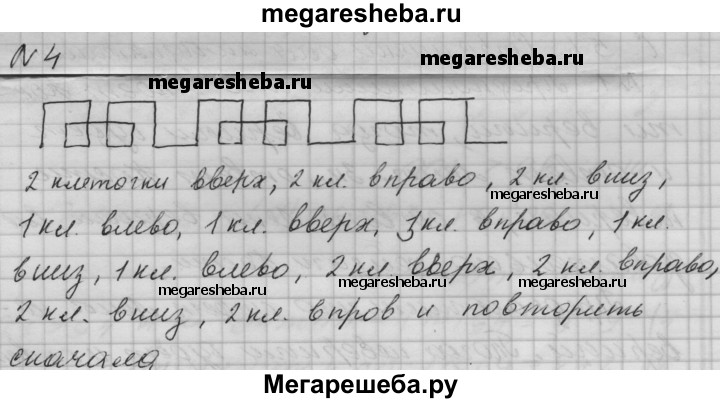 megaresheba.ru
N 4
megaresheba.ru
megaresheba.ru
2 клеточки вверх, 2 кл. вправо, 2 кл. вниз,
megaresheba.ru
1 кл. влево, 1 кл. вверх, 3 кл. вправо, 1 кл.
вниз, 1 кл. влево, 2 кл. вверх, 2 кл. вправо,
megaresheba.ru megaresheba.ru megaresheba.ru
2 кл. вниз, 2 кл. впров и повторять
сначала
Мегарешеба.ру